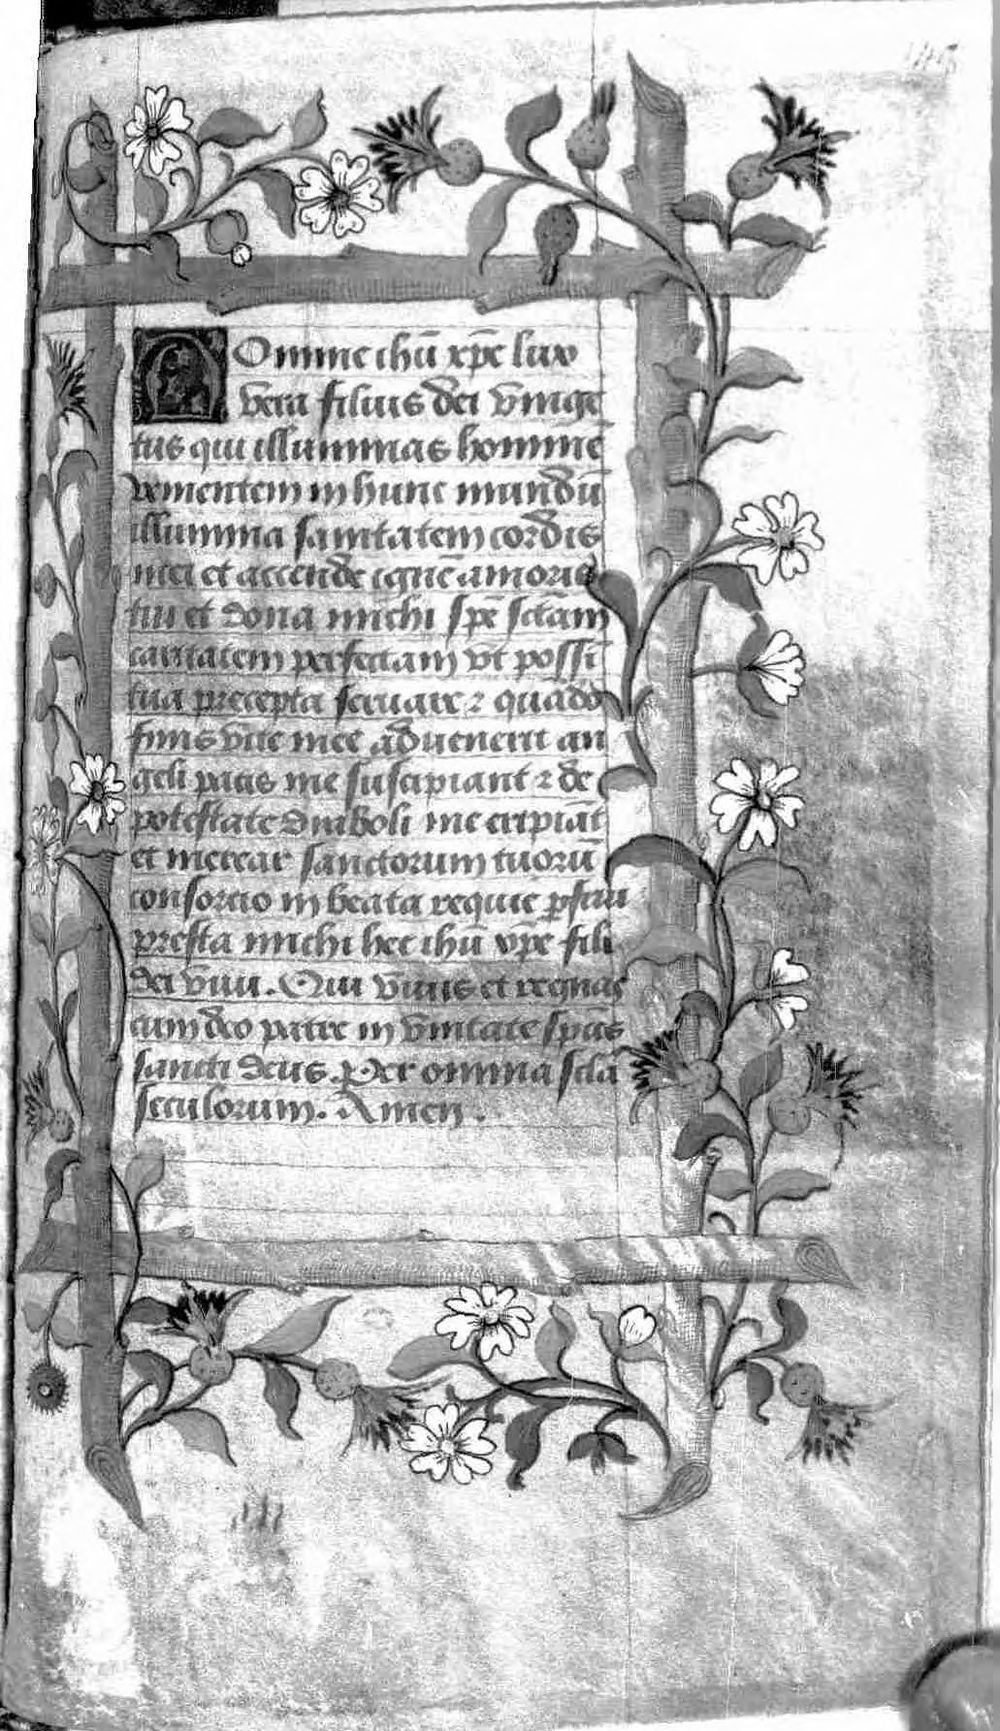 Domine ihū xp̄e lux
vera filius dei vnige
tus qui illuminas hominē
venientem in hunc mundū
illumina sanitatem cordis
mei et accende ignē amoris
tui et dona michi spē sctām
caritatem perfectam vt possī
tua precepta seruare ⁊ quādo
finis vite mee aduenerit an
geli pacis me suscipiant ⁊ de
potestate diaboli me eripiāt
et merear sanctorum tuorū
consorcio in beata requie ꝑfrui
presta michi hec ihū xp̄e fili
dei viui. Qui viuis et regnas
cum deo patre in vnitate spūs
sancti deus. Per omnia scl̄a
seculorum. Amen.